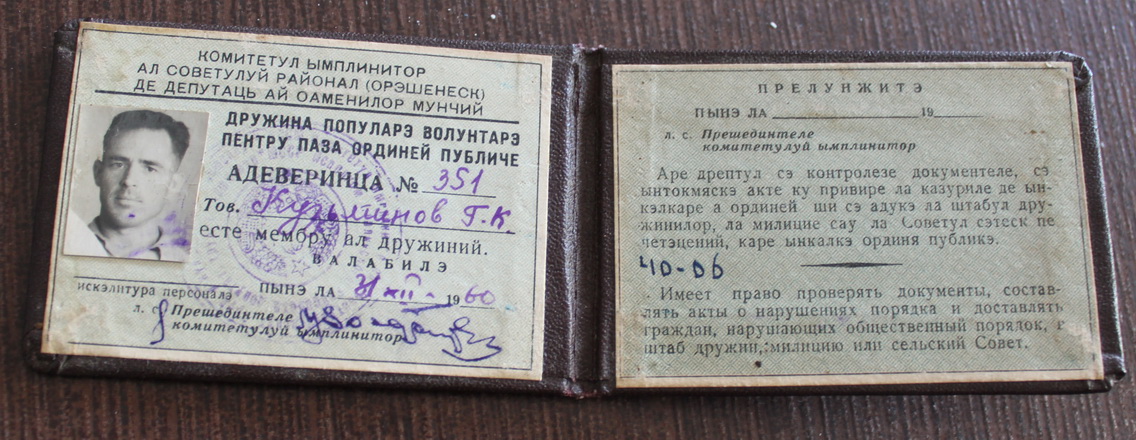 КОМИТЕТУЛ ЫМПЛИНИТОР
АЛ СОВЕТУЛУЙ РАЙОНАЛ (ОРЭШЕНЕСК)
ДЕ ДЕПУТАЦЬ АЙ ОАМЕНИЛОР МУНЧИЙ
ДРУЖИНА ПОПУЛАРЭ ВОЛУНТАРЭ
ПЕНТРУ ПАЗА ОРДИНЕЙ ПУБЛИЧЕ
АДЕВЕРИНЦА № 351
Тов. Кузьминов Г.К.
есте мембру ал дружиний.
ВАЛАБИЛЭ
ПЫНЭ ЛА 31 XII 1960
искэлитура персоналэ
л. с. Прешединтеле
комитетулуй ымплинитор
ПРЕЛУНЖИТЭ
ПЫНЭ ЛА 19
л. с. Прешединтеле
комитетулуй ымплинитор
Аре дрептул сэ контролезе документеле, сэ
ынтокмяскэ акте ку привире ла казуриле де ын-
кэлкаре а ординей ши сэ адукэ ла штабул дру-
жинилор, ла милицие сау ла Советул сэтеск пе
четэцений, каре ынкалкэ ординя публикэ.
40-06
Имеет право проверять документы, состав-
лять акты о нарушениях порядка и доставлять
граждан, нарушающих общественный порядок, в
штаб дружин, милицию или сельский Совет.